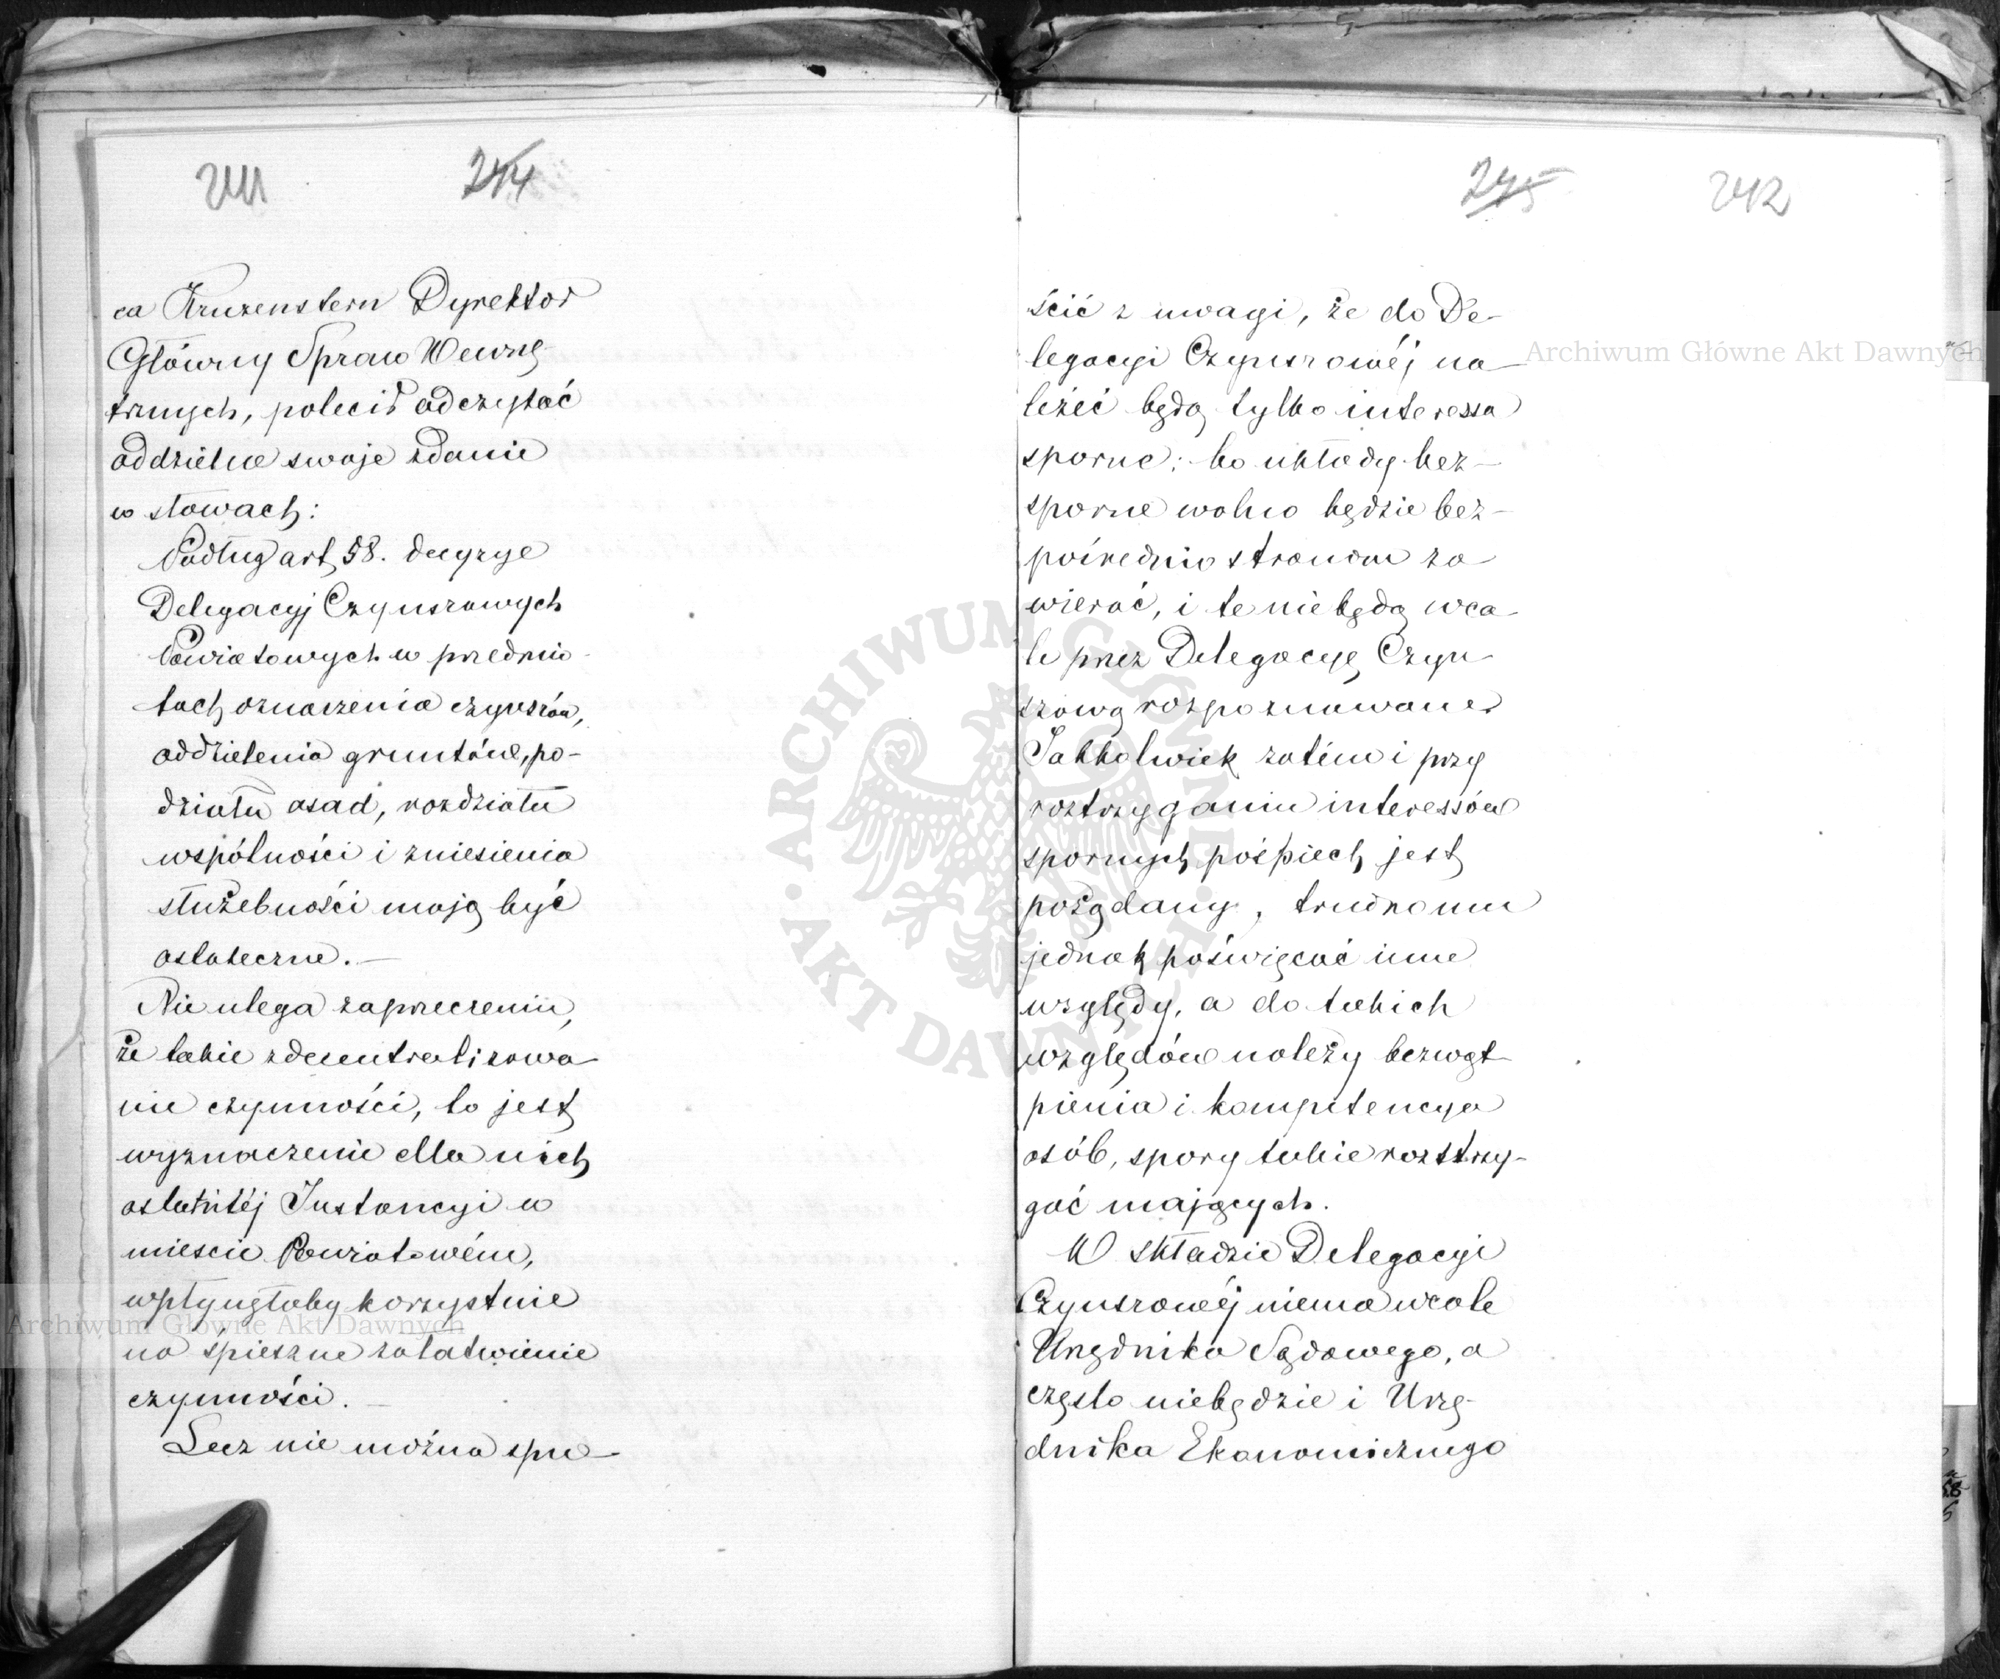 241 244
ca Kruzenstern Dyrektor
Główny Spraw Wewnę-
trznych, polecił odczytać
oddzielne swoje zdanie
w słowach:
Podług art, 58. decyzye
Delegacyj Czynszowych
Powiatowych w przedmio-
tach oznaczenia czynszów,
oddzielenia gruntów, po-
działu osad, rozdziału
wspólności i zniesienia
służebności mają być
ostateczne.—
Nie ulega zaprzeczeniu,
że takie zdecentralizowa-
nie czynności, to jest
wyznaczenie dla nich
ostatniéj Instancyi w
mieście Powiatowém,
wpłynęłoby korzystnie
na śpieszne załatwienie
czynności.—
Lecz nie można spu-
245 242
ścić z uwagi, że do De-
legacyi Czynszowéj na-
leżéć będą tylko interessa
sporne; bo układy bez-
sporne wolno będzie bez-
pośrednio stronom za-
wierać, i te nie będą wca-
le przez Delegacye Czyn-
szową rozpoznawane.
Jakkolwiek zatém i przy
roztrzyganiu interessów
spornych pośpiech jest
pożądany, trudno mu
jednak poświęcać inne
względy, a do takich
względów należy bezwąt-
pienia i kompetencya
osób, spory takie rozstrzy-
gać mających.
W składzie Delegacyi
Czynszowéj niema wcale
Urzędnika Sądowego, a
często niebędzie i Urzę-
dnika Ekonomicznego
Archiwum Główne Akt Dawnych
Archiwum Główne Akt Dawnych
ARCHIWUM GŁÓWNE · AKT DAWNYCH ·